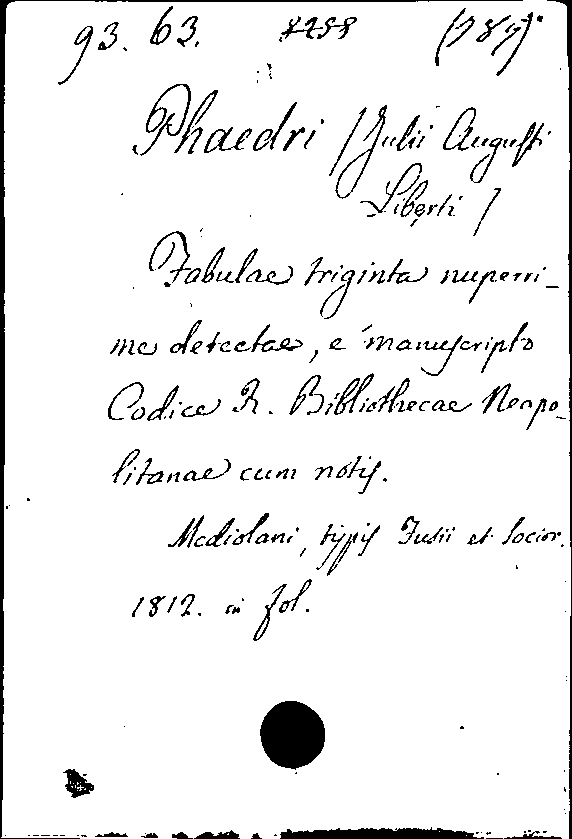 93. 63. (787)
Phaedri / Julii Augusti
Liberti /
Fabulae triginta nuperri-
me detectae, e manuscripto
Codice R. Bibliothecae Neapo-
litanae cum notis.
Mediolani, typis Fusii et Socior.
1812. in fol.